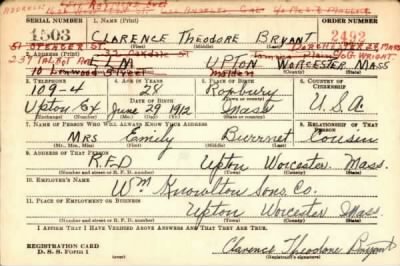 SERIAL NUMBER 1. NAME (Print) ORDER NUMBER
4503 CLARENCE THEODORE BRYANT 2492
(First) (Middle) (Last)
2. ADDRESS (Print)
51 SPENCER ST DORCHESTER MASS
237 TALBOT AVE ELM UPTON WORCESTER MASS
3. TELEPHONE 4. AGE IN YEARS 5. PLACE OF BIRTH 6. COUNTRY OF CITIZENSHIP
109-4 28 Roxbury
DATE OF BIRTH (Town or county)
Upton Ex June 29 1912 Mass U.S.A.
(Exchange) (Number) (Mo.) (Day) (Yr.) (State or country)
7. NAME OF PERSON WHO WILL ALWAYS KNOW YOUR ADDRESS 8. RELATIONSHIP OF THAT PERSON
Mrs Emily Burrnet Cousin
(Mr., Mrs., Miss) (First) (Middle) (Last)
9. ADDRESS OF THAT PERSON
R.F.D Upton Worcester Mass.
(Number and street or R. F. D. number) (Town) (County) (State)
10. EMPLOYER'S NAME
Wm Knowlton Sons Co.
11. PLACE OF EMPLOYMENT OR BUSINESS
Upton Worcester Mass
(Number and street or R. F. D. number) (Town) (County) (State)
I AFFIRM THAT I HAVE VERIFIED ABOVE ANSWERS AND THAT THEY ARE TRUE.
REGISTRATION CARD
D. S. S. Form 1 Clarence Theodore Bryant
(Registrant's signature)